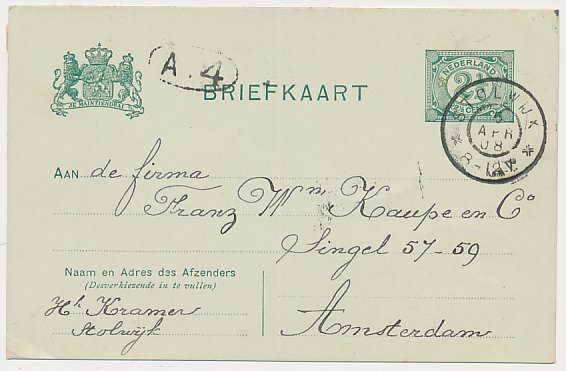 JE MAINTIENDRAI
A.4
BRIEFKAART
NEDERLAND
2½
CENT
STOLWIJK
APR
08
8-12V
AAN de firma
Franz Wm Kaupe en Co
Singel 57-59
Amsterdam
Naam en Adres des Afzenders
(Desverkiezende in te vullen)
Hk Kramer
Stolwijk